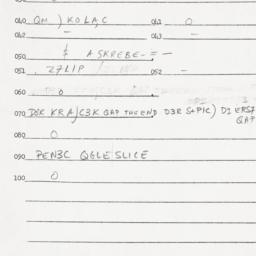 040 QM ) KOLAC 041 0
042 — 043 —
050 $ ASKREBE-=-
051 Z7LIP 052 —
060 0
070 DBK KRA/C3K QAP THE END D3R S+PIC) DI ERSF
QAP
080 0
090 PEN3C QGLE SLICE
100 0